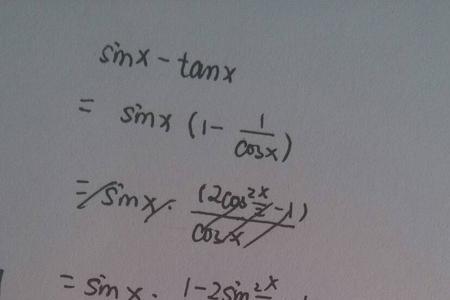 sinx - tanx
= sinx (1 - 1/cosx)
= sinx · (2cos²x/2 - 1)/cosx
= sinx · 1 - 2sin²x